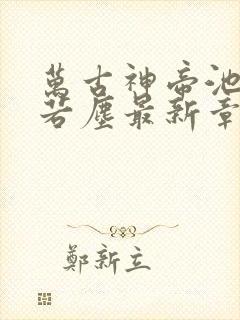 萬古神帝池
若塵最新章
鄭新立